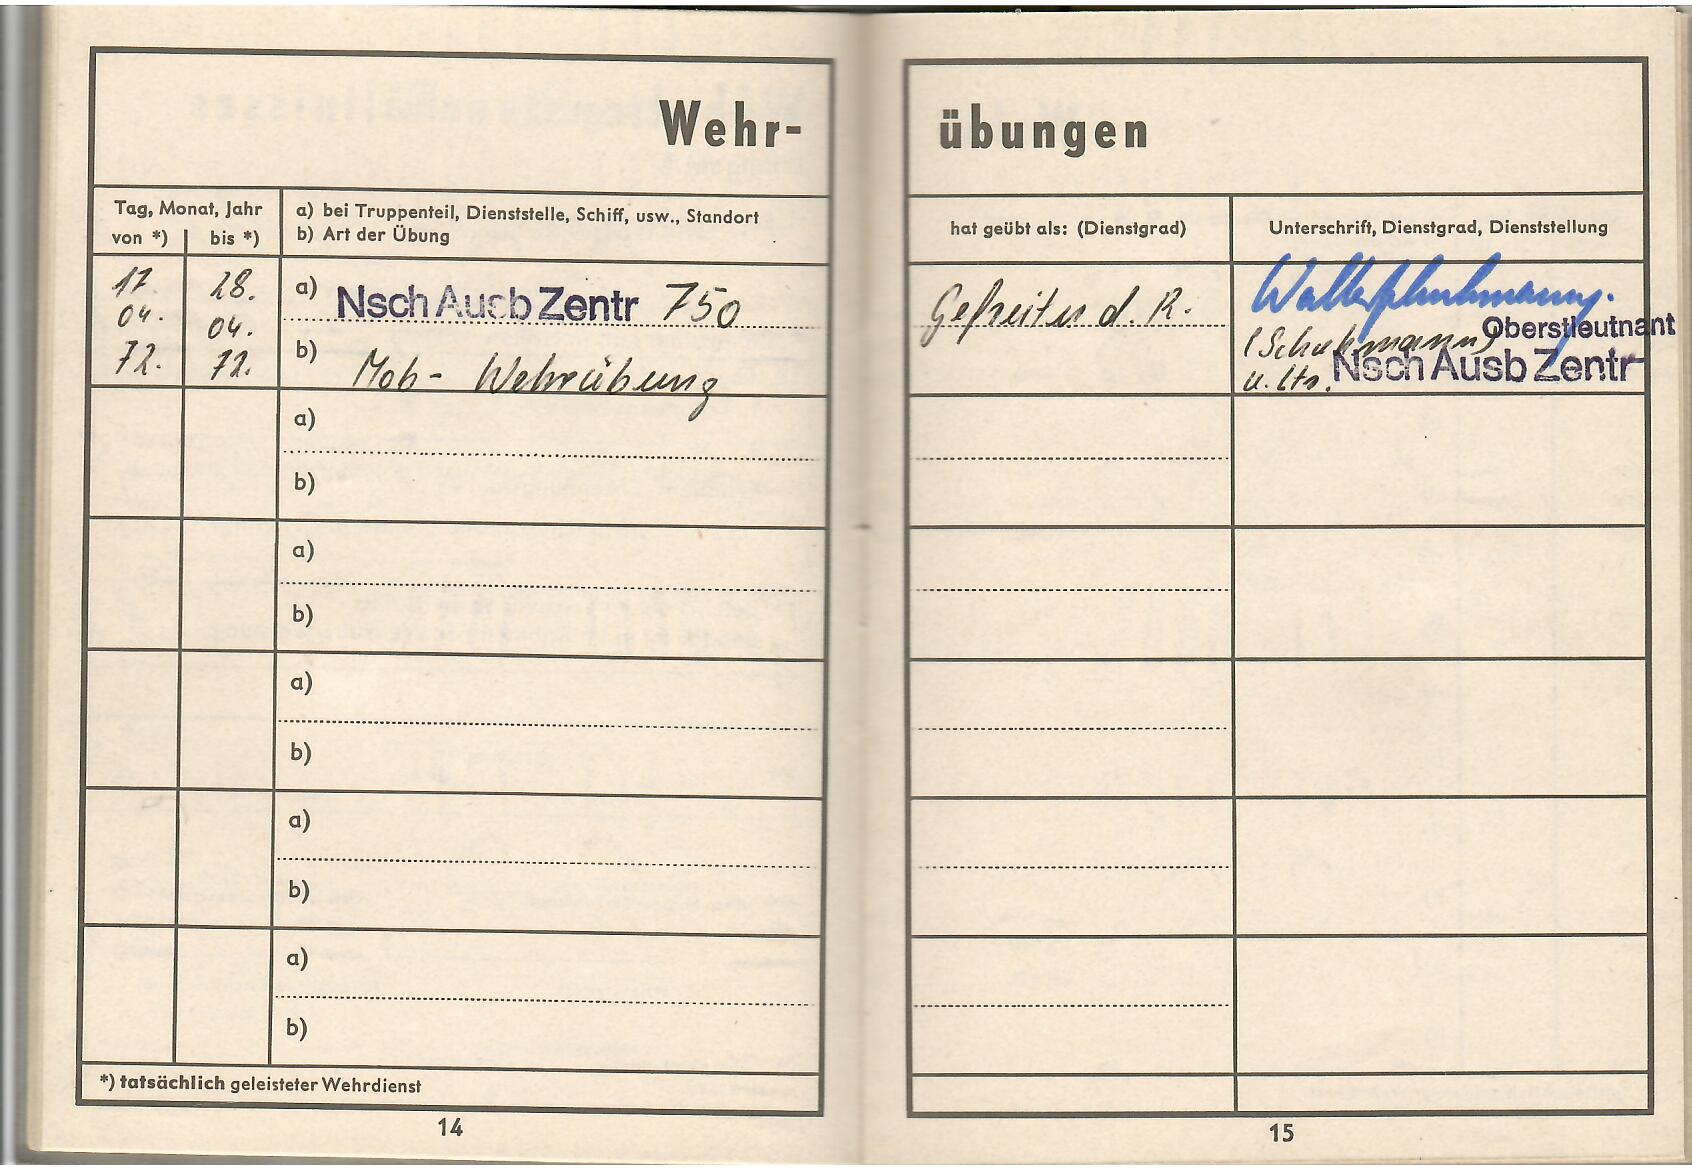 Wehr-
Tag, Monat, Jahr
von *) bis *)
a) bei Truppenteil, Dienststelle, Schiff, usw., Standort
b) Art der Übung
17. 28.
04. 04.
72. 72.
a) Nsch Ausb Zentr 750
b) Mob- Wehrübung
a)
b)
a)
b)
a)
b)
a)
b)
a)
b)
*) tatsächlich geleisteter Wehrdienst
14
übungen
hat geübt als: (Dienstgrad) Unterschrift, Dienstgrad, Dienststellung
Gefreiter d. R.
Oberstleutnant
(Schuhmann)
u. Ltr. Nsch Ausb Zentr
15